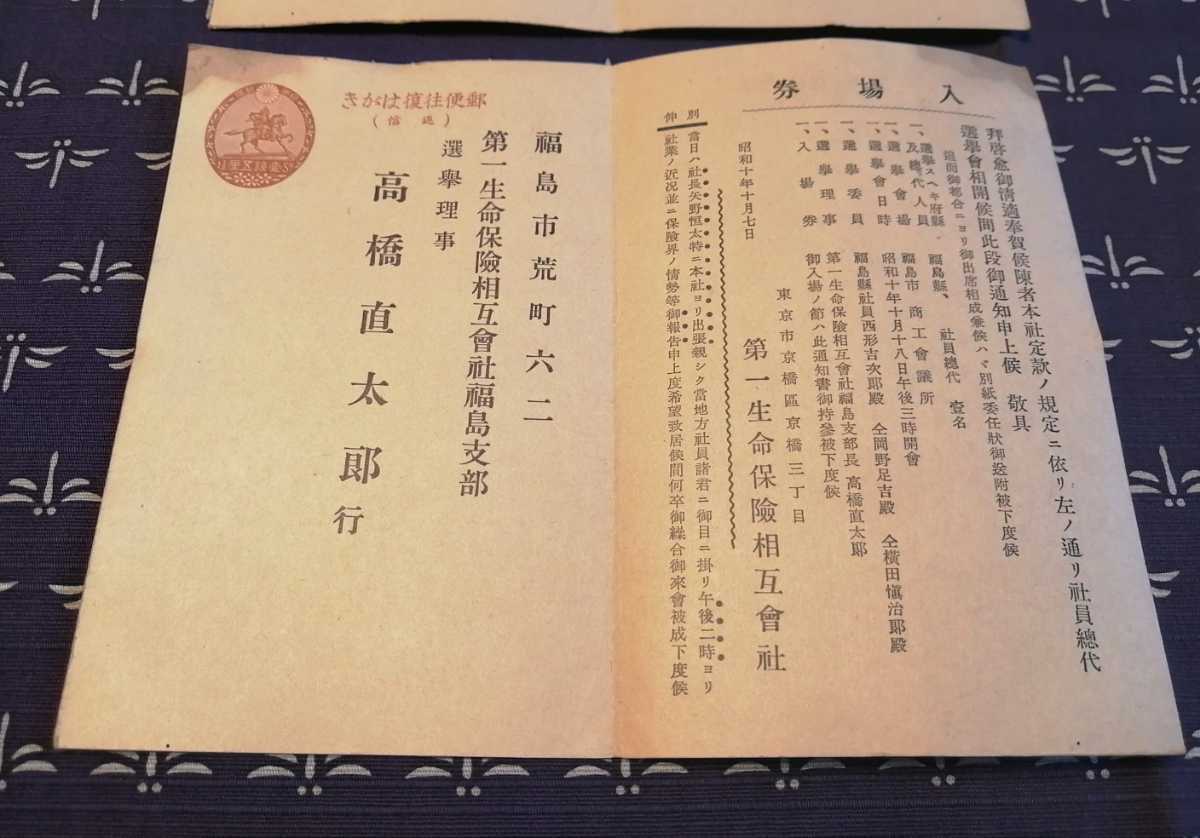 入場券
拜啓愈御淸適奉賀候陳者本社定款ノ規定ニ依リ左ノ通リ社員總代
選擧會相開候間此段御通知申上候 敬具
追而御都合ニヨリ御出席相成兼候ハヾ別紙委任狀御送附被下度候
一、選擧スヘキ府縣及總代人員 福島縣、 社員總代 壹名
一、選擧會場 福島市 商工會議所
一、選擧會日時 昭和十年十月十八日午後三時開會
一、選擧委員 福島縣社員西形吉次郞殿 仝岡野足吉殿 仝橫田愼治郞殿
一、選擧理事 第一生命保險相互會社福島支部長 高橋直太郞
一、入場券 御入場ノ節ハ此通知書御持參被下度候
昭和十年十月七日
東京市京橋區京橋三丁目
第一生命保險相互會社
別伸
當日ハ社長矢野恒太特ニ本社ヨリ出張親シク當地方社員諸君ニ御目ニ掛リ午後二時ヨリ
社業ノ近況並ニ保險界ノ情勢等御報告申上度希望致居候間何卒御繰合御來會被成下度候
郵便往復はがき
(返信)
福島市荒町六二
第一生命保險相互會社福島支部
選擧理事
高橋直太郞行